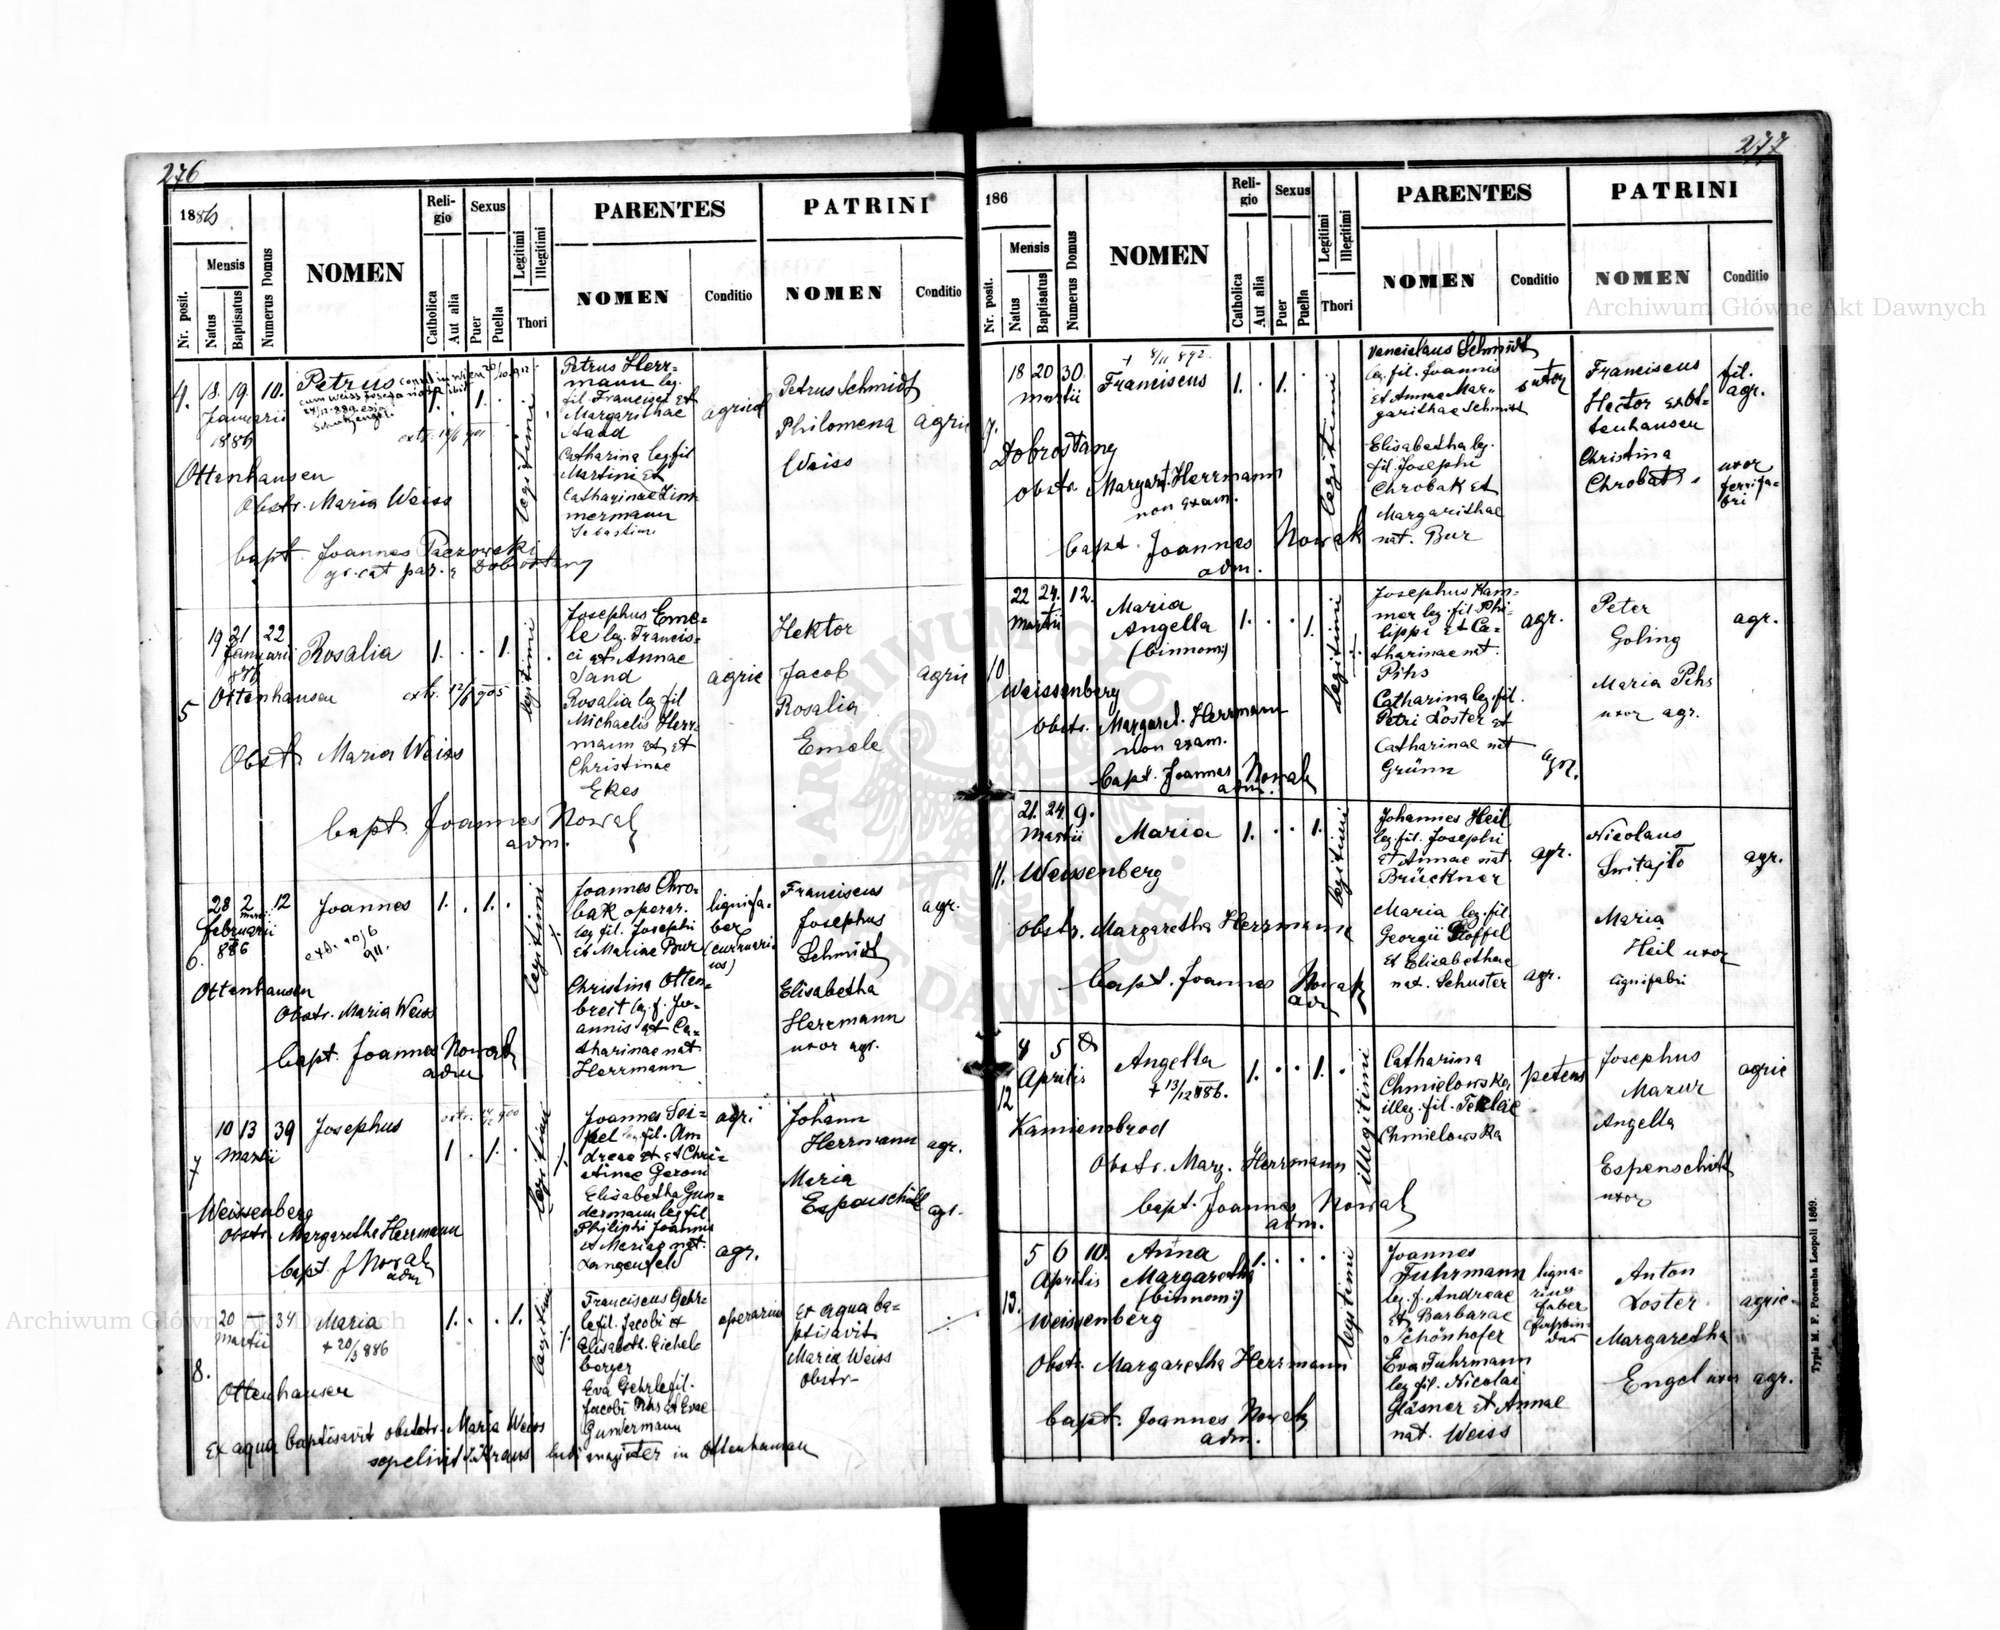 276
1886
Nr. posit.
Mensis
Natus
Baptisatus
Numerus Domus
NOMEN
Reli-
gio
Catholica
Aut alia
Sexus
Puer
Puella
Legitimi
Illegitimi
Thori
PARENTES
NOMEN
Conditio
PATRINI
NOMEN
Conditio
4. 18. 19. 10.
Januarii
1886
Ottenhausen
Petrus
extr.
Obstr. Maria Weiss
bapt. Joannes Paczowski
gr. cat par. e Dobrostany
1. . 1. .
legitimi
Petrus Herr-
mann leg.
fil. Francisci et
Margarithae
Staad
Catharina leg fil
Martini et
Catharinae Zim-
mermann
Sebastian
agricol
Petrus Schmidt
Philomena
Weiss
agric
5
19 21 22
Januarii
Ottenhausen
Rosalia
extr. 12/8 905
Obst Maria Weiss
bapt. Joannes Nowak
adm.
1. . . 1.
legitimi
Josephus Eme-
le leg. Francis-
ci et Annae
Sand
Rosalia leg fil
Michaelis Herr-
mann et et
Christinae
Ekes
agric
Hektor
Jacob
Rosalia
Emele
agric
6.
28 2 12
februarii
886
Ottenhausen
Joannes
extr. 20/6
911.
Obstr. Maria Weiss
bapt. Joannes Nowak
adm
1. . 1. .
legitimi
Joannes Chro-
bak operar.
leg fil. Josephi
et Mariae Bur
Christina Otten-
breit leg. f. Jo-
annis et Ca-
tharinae nat
Herrmann
lignifa-
ber
(curruari
us)
Franciscus
Josephus
Schmidt
Elisabetha
Herrmann
uxor agr.
agr.
7
10 13 39
Martii
Weissenberg
Josephus
extr. 900
Obstr. Margaretha Herrmann
bapt. J Nowak
adm
1 . 1. .
legitimi
Joannes Sei-
pel leg fil. An
dreae et et Chri-
stinae Gerom
Elisabetha Gun-
dermann leg fil
Philiphi Joannis
et Mariae nat.
Langenfeld
agr.
agr.
Johann
Herrmann
Maria
Espenschitt
agr.
agr.
8.
20 34
Martii
Ottenhausen
Maria
+ 20/3 886
1. . . 1.
legitimi
Franciscus Gehr-
le fil. Jacobi et
Elisabeth. Eichel-
berger
Eva Gehrle fil.
Jacobi Pihs et Evae
Gundermann
operarius
Ex aqua ba-
ptisavit
Maria Weiss
obstr-
Ex aqua baptisavit obstetr. Maria Weiss
sepelivit Krans ludi magister in Ottenhausen
277
186
Nr. posit.
Mensis
Natus
Baptisatus
Numerus Domus
NOMEN
Reli-
gio
Catholica
Aut alia
Sexus
Puer
Puella
Legitimi
Illegitimi
Thori
PARENTES
NOMEN
Conditio
PATRINI
NOMEN
Conditio
9.
18 20 30
Martii
Dobrostany
+ 8/11 892.
Franciscus
obstr. Margart. Herrmann
non exam.
bapt. Joannes Nowak
adm.
1. . 1.
legitimi
Venceslaus Schmidt
leg. fil. Joannis
et Annae Mar-
garithae Schmidt
Elisabetha leg.
fil. Josephi
Chrobak et
Margarithae
nat. Bur
sutor
Franciscus
Hector ex Ot-
tenhausen
Christina
Chrobak
fil.
agr.
uxor
ferrifa-
bri
10
22 24. 12.
Martii
Weissenberg
Maria
Angella
(binnom:)
obstr. Margaret. Herrmann
non exam.
bapt. Joannes Nowak
adm.
1. . . 1.
legitimi
Josephus Kam-
mer leg. fil Phi-
lippi et Ca-
tharinae nat.
Pihs
Catharina leg. fil.
Petri Koster et
Catharinae nat
Grünn
agr.
agr.
Peter
Goling
Maria Pihs
uxor agr.
agr.
11.
21. 24. 9.
Martii
Weissenberg
Maria
obstr. Margaretha Herrmann
bapt. Joannes Nowak
adm
1. . . 1.
legitimi
Johannes Heil
leg. fil. Josephi
et Annae nat.
Brückner
Maria leg. fil.
Georgii Stoffel
et Elisabethae
nat. Schuster
agr.
agr.
Nicolaus
Switajło
Maria
Heil uxor
lignifabri
agr.
12
4 5 8
Aprilis
Kamienobrod
Angella
+ 13/12 886.
Obstr. Marg. Herrmann
bapt. Joannes Nowak
adm.
1. . . 1.
illegitimi
Catharina
Chmielowska
illeg. fil. Teklae
Chmielowska
petens
Josephus
Mazur
Angella
Espenschitt
uxor
agric
13.
5 6 10.
Aprilis
Weissenberg
Anna
Margaretha
(binnom:)
Obstr. Margaretha Herrmann
bapt. Joannes Nowak
adm.
1. . . .
legitimi
Joannes
Fuhrmann
leg. f. Andreae
et Barbarae
Schönhofer
Eva Fuhrmann
leg fil. Nicolai
Gläsner et Annae
nat. Weiss
ligna-
rius
faber
Anton
Koster
Margaretha
Engel uxor agr.
agric-
Typis M. F. Poremba Leopoli 1869.
Archiwum Główne Akt Dawnych
Archiwum Główne Akt Dawnych
ARCHIWUM GŁÓWNE AKT DAWNYCH